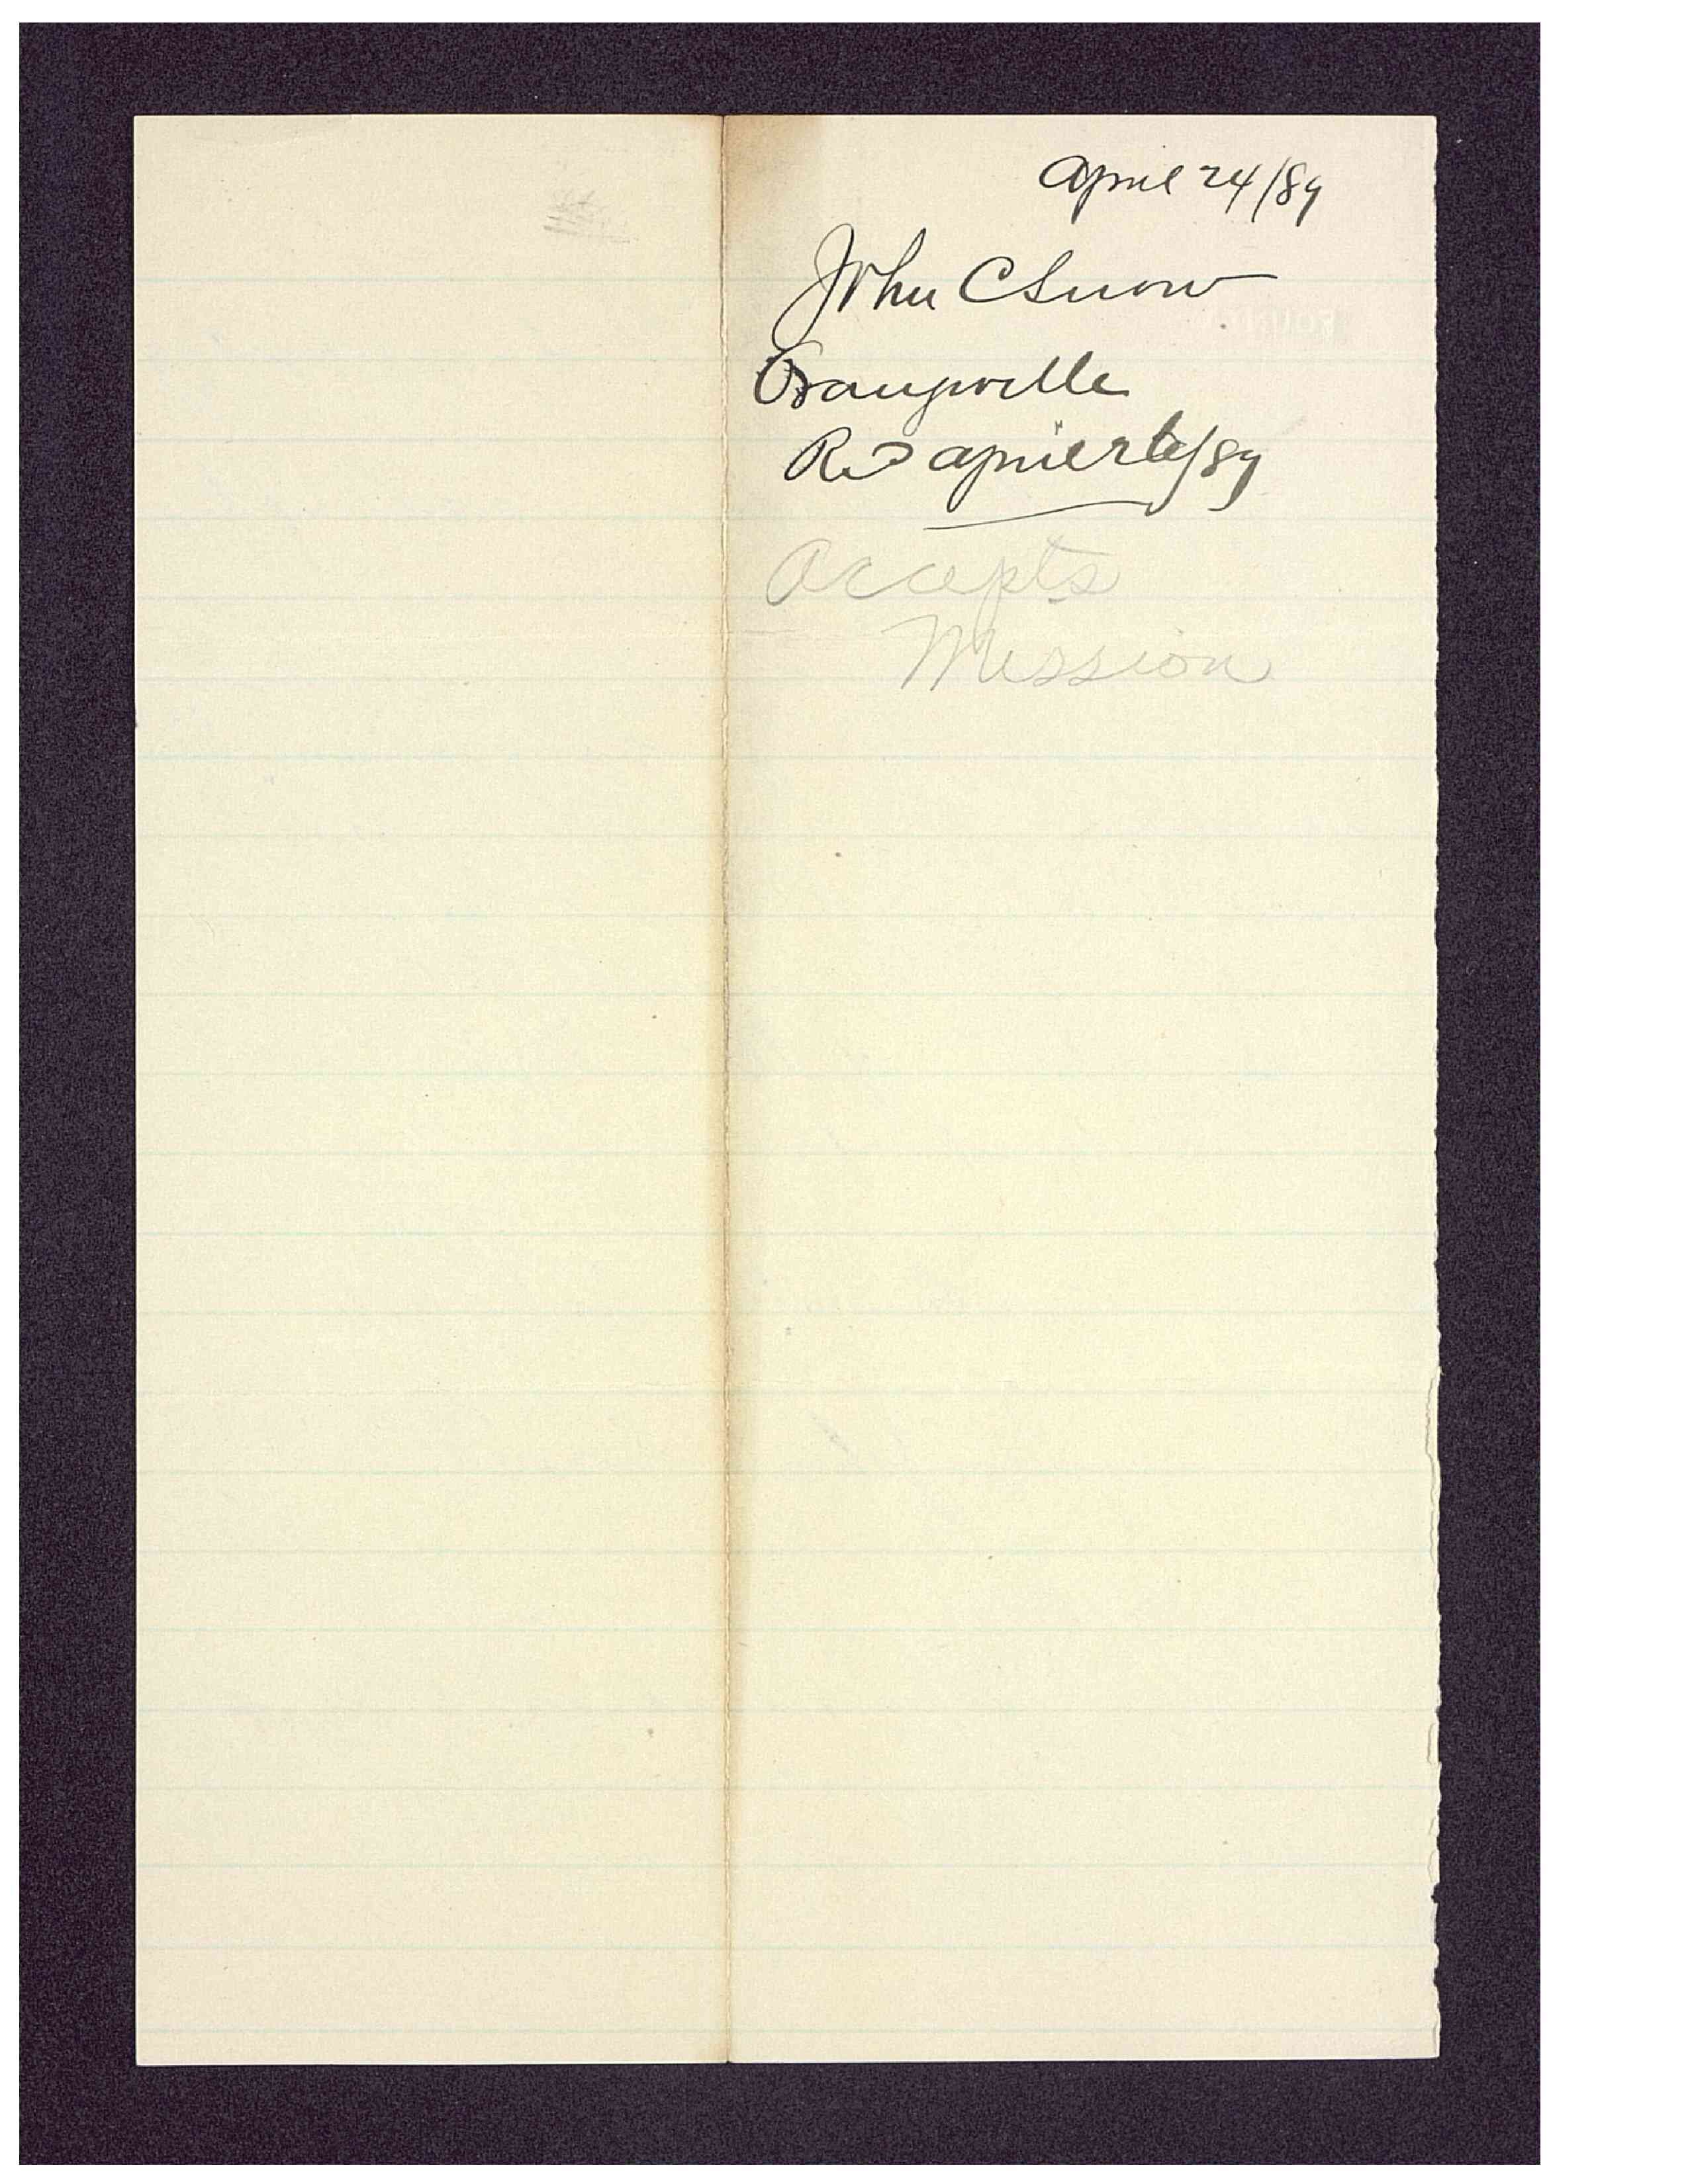 April 24/89
John C Snow
Orangeville
Rd April 26/89
Accepts
Mission